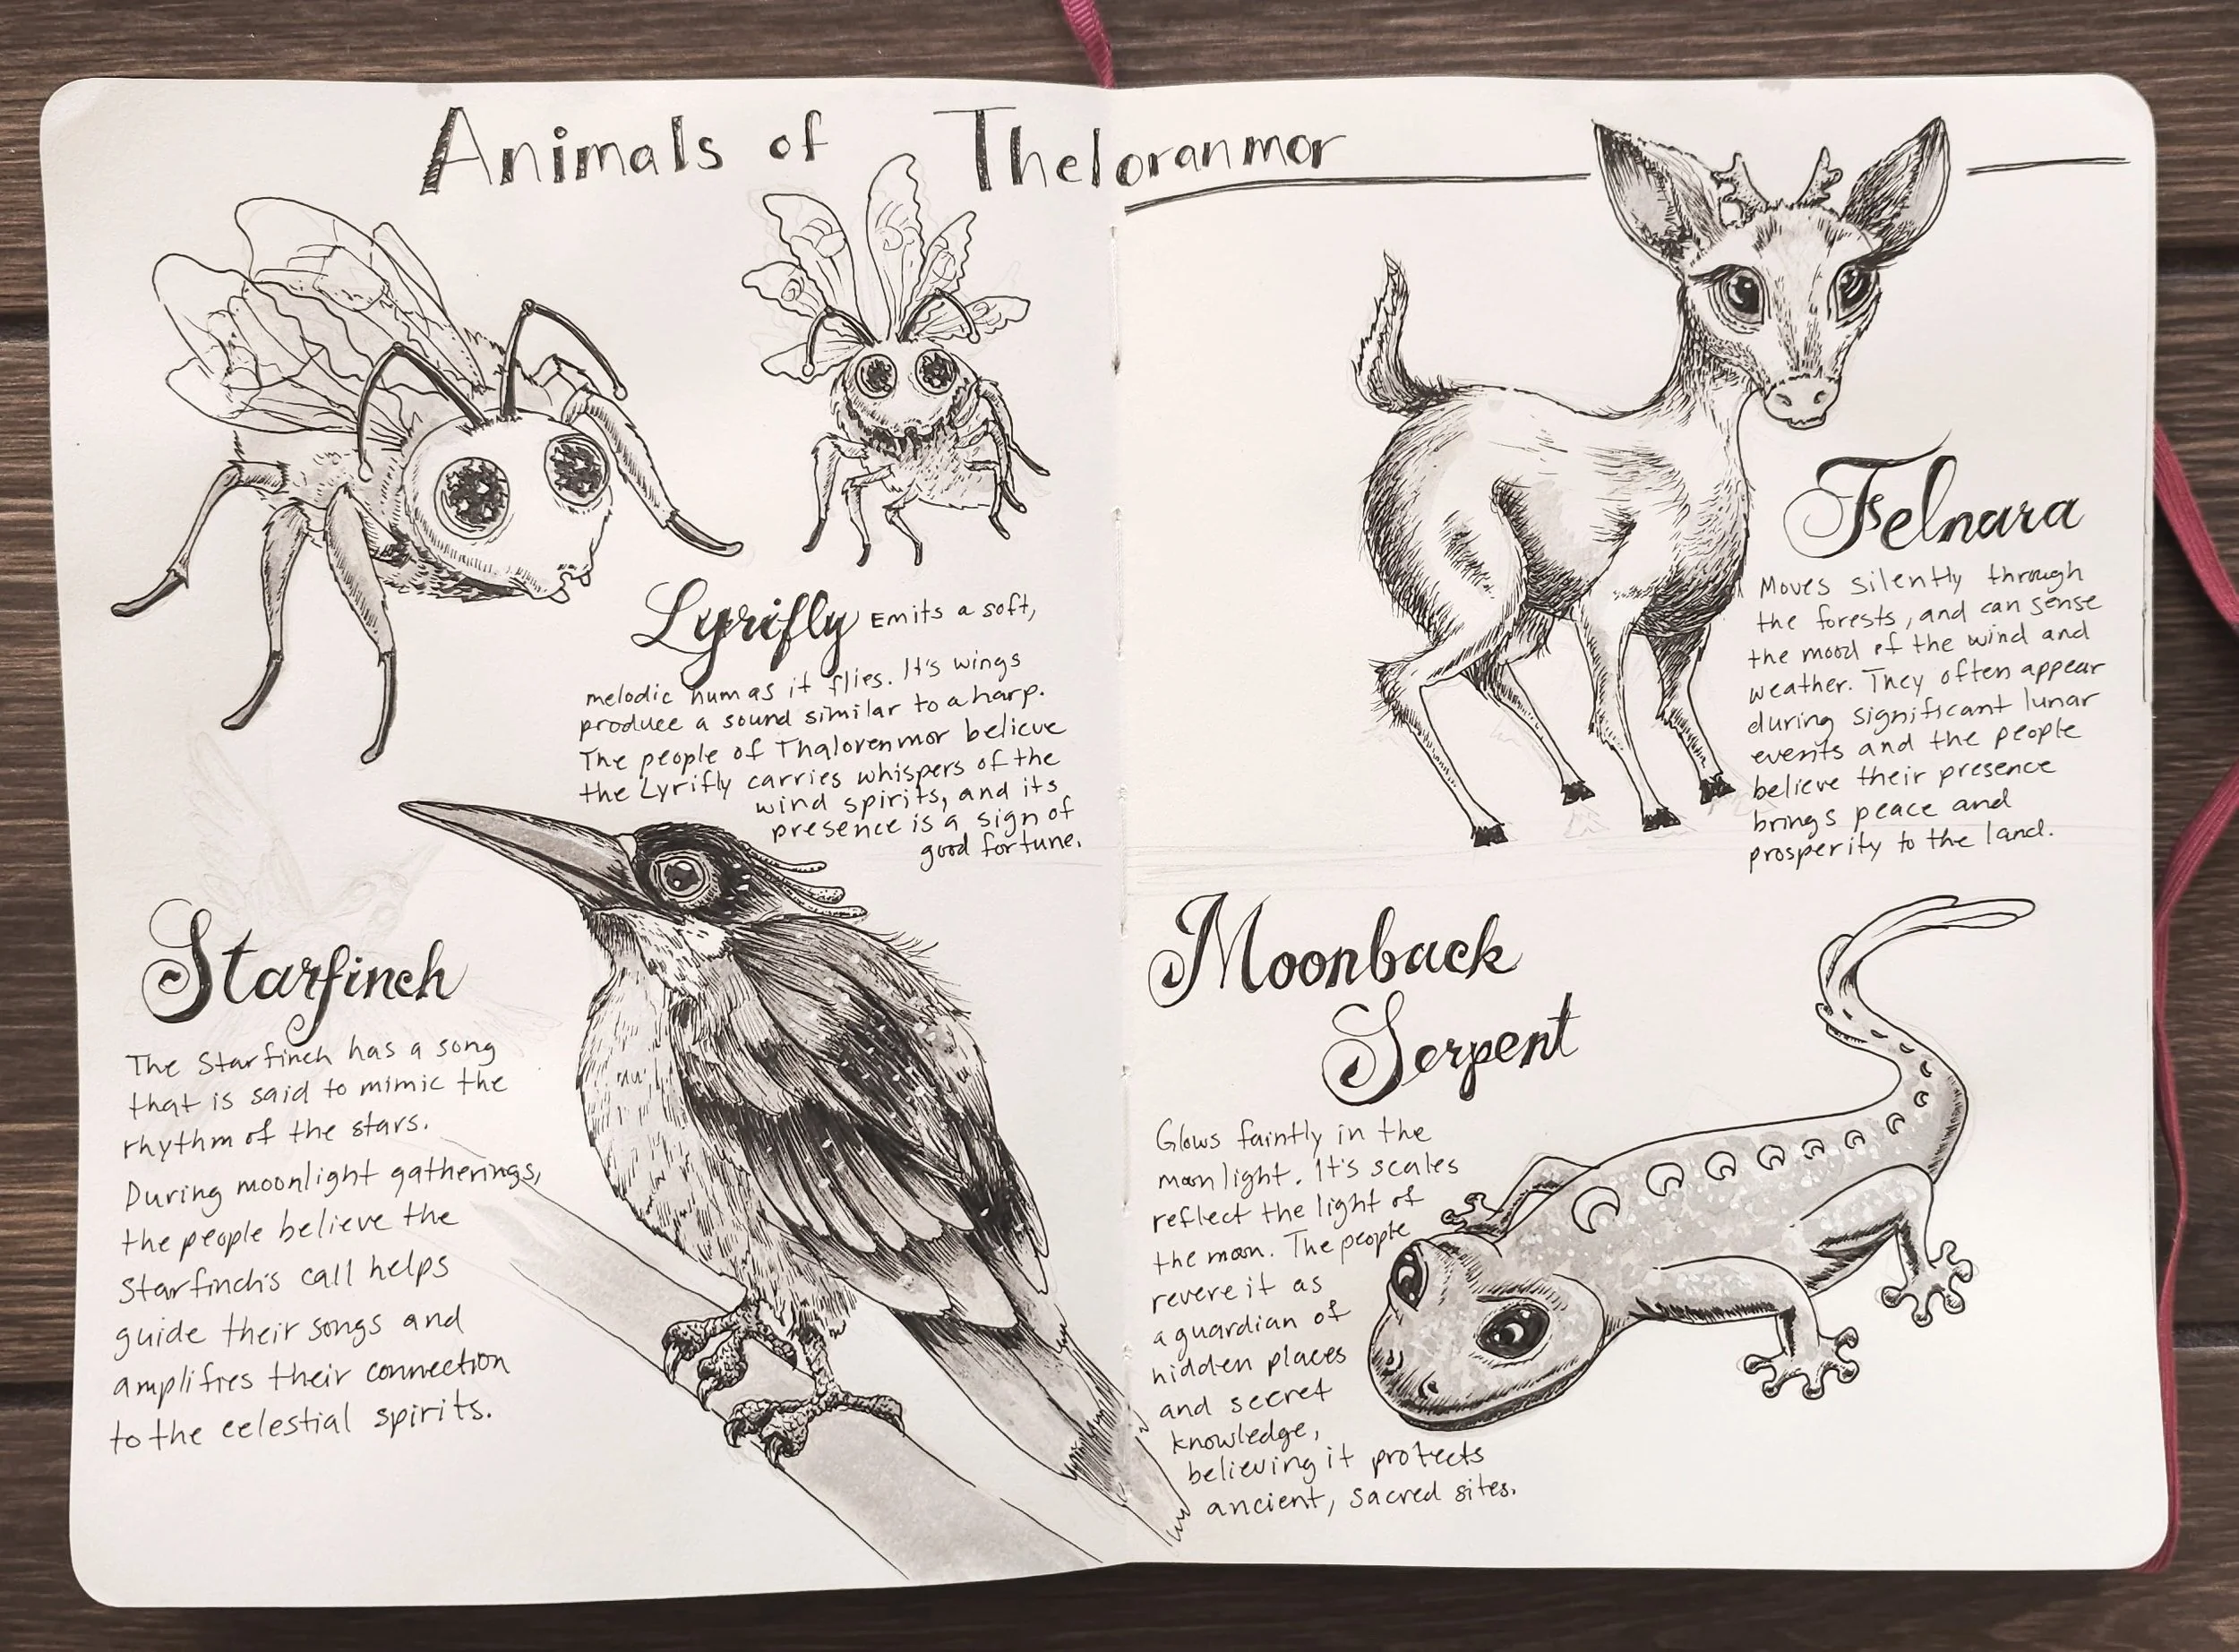 Animals of Theloranmor
Lyrifly Emits a soft,
melodic hum as it flies. It's wings
produce a sound similar to a harp.
The people of Thalorenmor believe
the Lyrifly carries whispers of the
wind spirits, and its
presence is a sign of
good fortune.
Starfinch
The Starfinch has a song
that is said to mimic the
rhythm of the stars.
During moonlight gatherings,
the people believe the
Starfinch's call helps
guide their songs and
amplifies their connection
to the celestial spirits.
Felnara
Moves silently through
the forests, and can sense
the mood of the wind and
weather. They often appear
during significant lunar
events and the people
believe their presence
brings peace and
prosperity to the land.
Moonback
Serpent
Glows faintly in the
moonlight. It's scales
reflect the light of
the moon. The people
revere it as
a guardian of
hidden places
and secret
knowledge,
believing it protects
ancient, sacred sites.